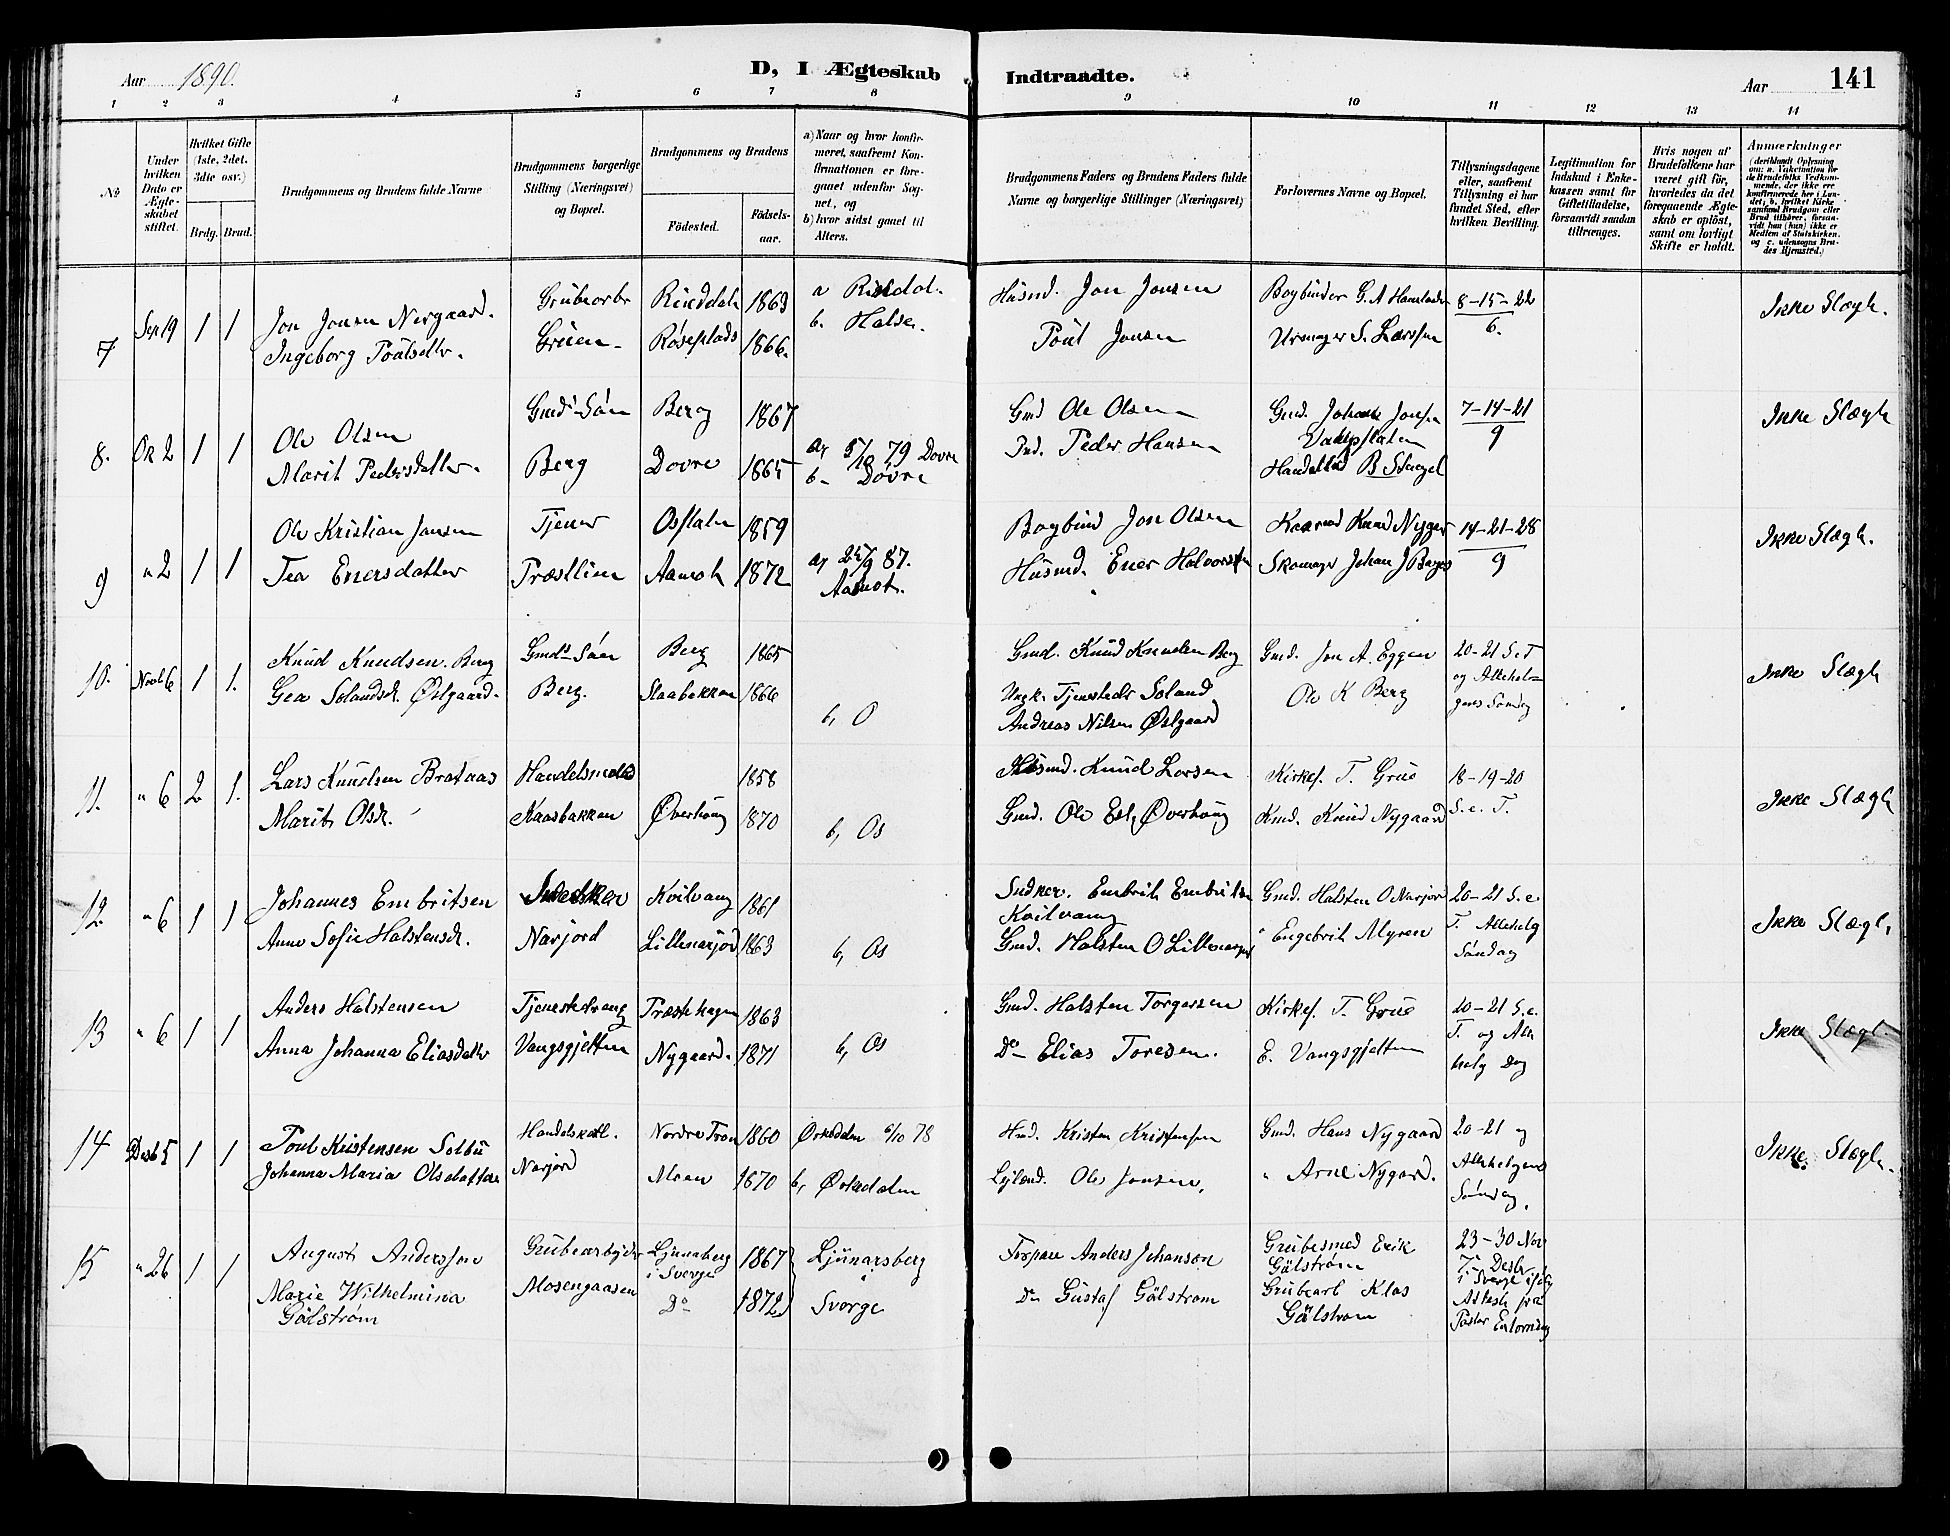 Aar 1890.
D, I Ægteskab Indtraadte.
Aar 141
1 2 3 4 5 6 7 8 9 10 11 12 13 14
No
Under hvilken Dato er Ægteskabet stiftet.
Hvilket Gifte (1ste, 2det, 3die osv.)
Brdg. Brud.
Brudgommens og Brudens fulde Navne
Brudgommens borgerlige Stilling (Næringsvei) og Bopæl.
Brudgommens og Brudens
Fødested.
Fødselsaar.
a) Naar og hvor konfirmeret, saafremt Konfirmationen er foregaaet udenfor Sognet, og
b) hvor sidst gaaet til Alters.
Brudgommens Faders og Brudens Faders fulde Navne og borgerlige Stillinger (Næringsvei)
Forlovernes Navne og Bopæl.
Tillysningsdagene eller, saafremt Tillysning ei har fundet Sted, efter hvilken Bevilling.
Legitimation for Indskud i Enkekassen samt for Giftetilladelse, forsaavidt saadan tiltrænges.
Hvis nogen af Brudefolkene har været gift før, hvorledes da det foregaaende Ægteskab er opløst, samt om lovligt Skifte er holdt.
Anmærkninger
(deriblandt Oplysning om: a. Vakcination for de Brudefolks Vedkommende, der ikke ere konfirmerede her i Landet; b. hvilket Kirkesamfund Brudgom eller Brud tilhører, forsaavidt han (hun) ikke er Medlem af Statskirken, og c. udensogns Brudes Hjemsted.)
7 Sep 19 1 1
Jon Jonsen Nergaard. Grubearbr Rinddal 1863 a Rindal.
Ingeborg Poulsdtr. Røseplads 1866. b. Halse.
Husmd. Jon Jonsen
Poul Jonsen
Bogbinder G. A
Urmager S. Larssen
8-15-22
6.
Ikke Slægt.
8. Ok 2 1 1
Ole Olsen Gmds Søn Berg 1867
Marit Pedersdatter. Berg Dovre 1865 a, 5/10 79 Dovre
b. Dovre
Gmd Ole Olsen
Ind. Peder Hansen
Gmd. Johan Jonsen
7-14-21
9
Ikke Slægt
9 " 2 1 1
Ole Kristian Jansen Tjener 1859
Tea Enersdatter Præstlien Aamot 1872 a, 25/9 87.
Aamot.
Bogbind Jon Olsen
Husmd. Ener Halvorsen
Knud Nygar
Skomager Johan J
14-21-28
9
Ikke Slægt.
10. Novb 6 1 1.
Knud Knudsen. Berg Gmds Søn Berg 1865
Gea Solandsd. Østgaard. Berg. Staabakken 1866
b, O
Gmd. Knud Knudsen Berg
Ungk. Tjenesteds Soland
Andreas Nilsen Østgaard
Gmd. Jon A. Eggen
Ole K Berg
20-21 S. e. T
og Allehelgens Søndag
Ikke Slægt
11. " 6 2 1.
Lars Knudsen Brataas Handelsmand 1858
Marit Olsd. Kaasbakken Øverhoug 1870
b, Os
Husmd. Knud Larsen
Gmd. Ole Es. Øverhoug
Kirkes. T. Grue
Kmd. Knud Nygaard
18-19-20
S. e. T.
Ikke Slægt
12. " 6 1 1
Johannes Embritsen Snedker Kvilvang 1861
Anne Sofie Halstensd. Narjord Lillenarjord 1863
b, Os
Sndker. Embrit Embritsen
Kvilvang
Gmd. Halsten O Lillenarjord
Gmd. Halsten O Narjord
" Engebrit Myren
20-21 S. e.
T. Allehelg
Søndag
Ikke Slægt,
13 " 6 1 1
Anders Halstensen Præstehagen 1863
Anna Johanna Eliasdatr Vangsgjelten Nygaard. 1871
b, Os
Gmd. Halsten Torgersen
Do Elias Toresen.
Kirkes. T. Grue
E. Vangsgjelten
20-21 S. e.
T. og Alle
helg Dag
Ikke Slægt.
14 Desb 5 1 1
Poul Kristensen Solbu Nordre Tron 1860 Ørkedalen 6/10 78
Johanna Maria Olsdatter Narjord Moen 1870 b, Ørkedalen
Hmd. Kristen Kristensen
Ole Jonsen,
Gmd. Hans Nygaard
" Arne Nygard.
20-21 og
Allehelgens
Søndag.
Ikke Slægt.
15 " 26 1 1
August Anderssen Grubearbejder Ljunaberg 1867 Ljunarsberg
i Sverge
Marie Wilhelmina Mosengaasen Do 1872 Sverge
Gälstrøm
Torpare Anders Johanson
Do Gustaf Gälstrom
Grubesmed Erik
Gälstrøm
Grubearb Klas
Gälstrom
23-30 Nov
7 Desb
i Sverge ifølg
Attest fra
Pastor